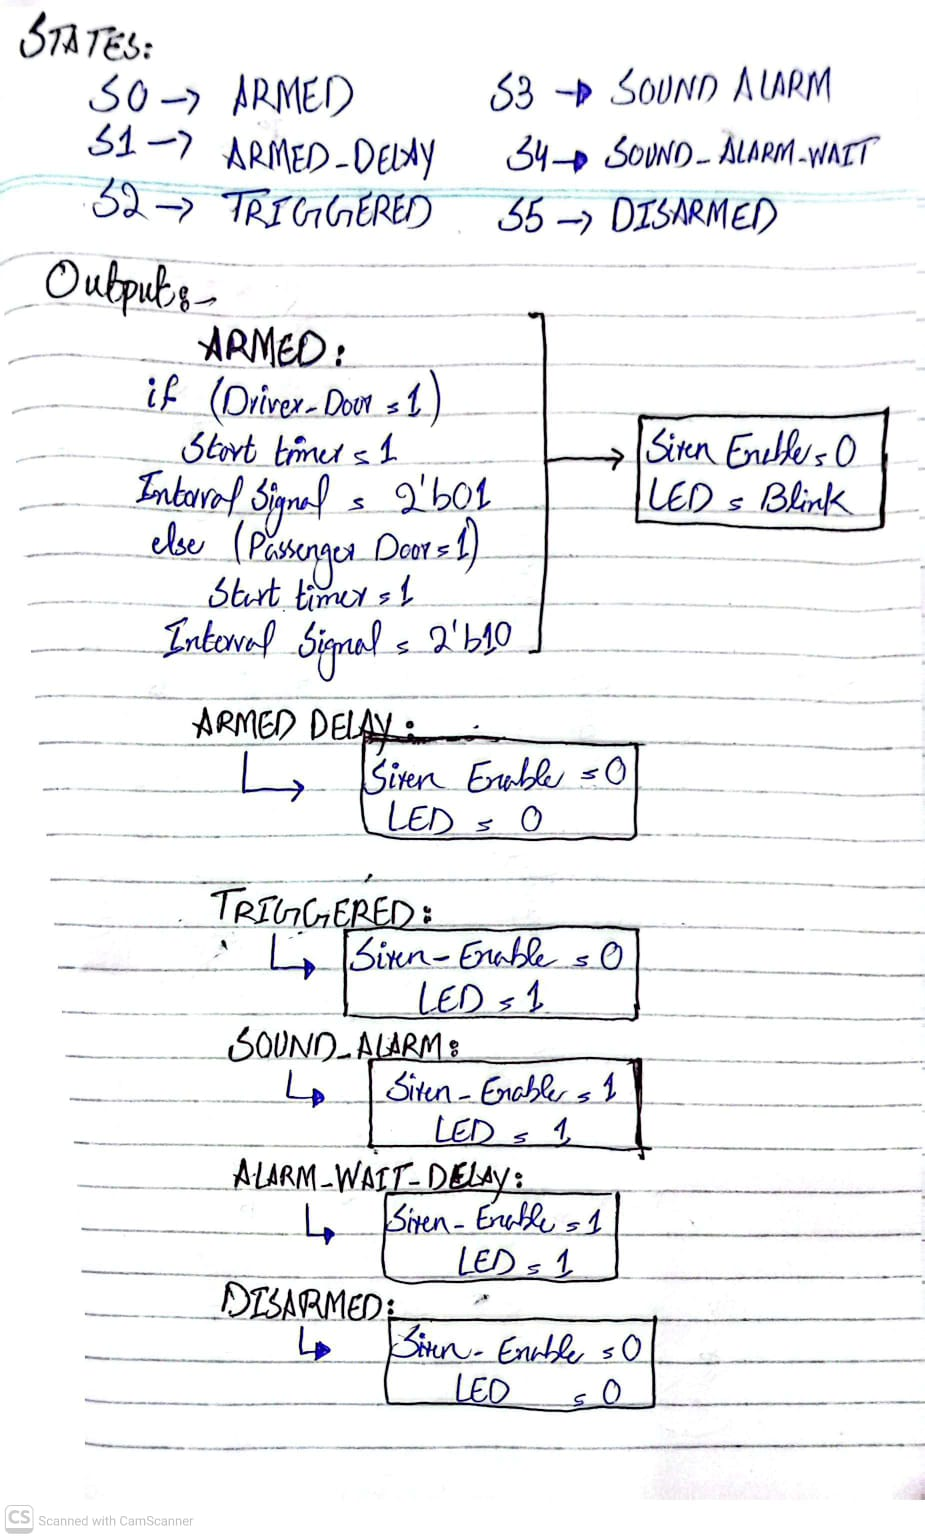 STATES:
S0 → ARMED
S1 → ARMED_DELAY
S2 → TRIGGERED
S3 → SOUND ALARM
S4 → SOUND_ALARM_WAIT
S5 → DISARMED
Outputs:-
ARMED:
if (Driver_Door = 1)
Start timer = 1
Interval Signal = 2'b01
else (Passenger Door = 1)
Start timer = 1
Interval Signal = 2'b10
→ Siren Enable = 0
LED = Blink
ARMED DELAY:
Siren Enable = 0
LED = 0
TRIGGERED:
Siren-Enable = 0
LED = 1
SOUND_ALARM:
Siren-Enable = 1
LED = 1
ALARM_WAIT_DELAY:
Siren-Enable = 1
LED = 1
DISARMED:
Siren-Enable = 0
LED = 0
CS Scanned with CamScanner